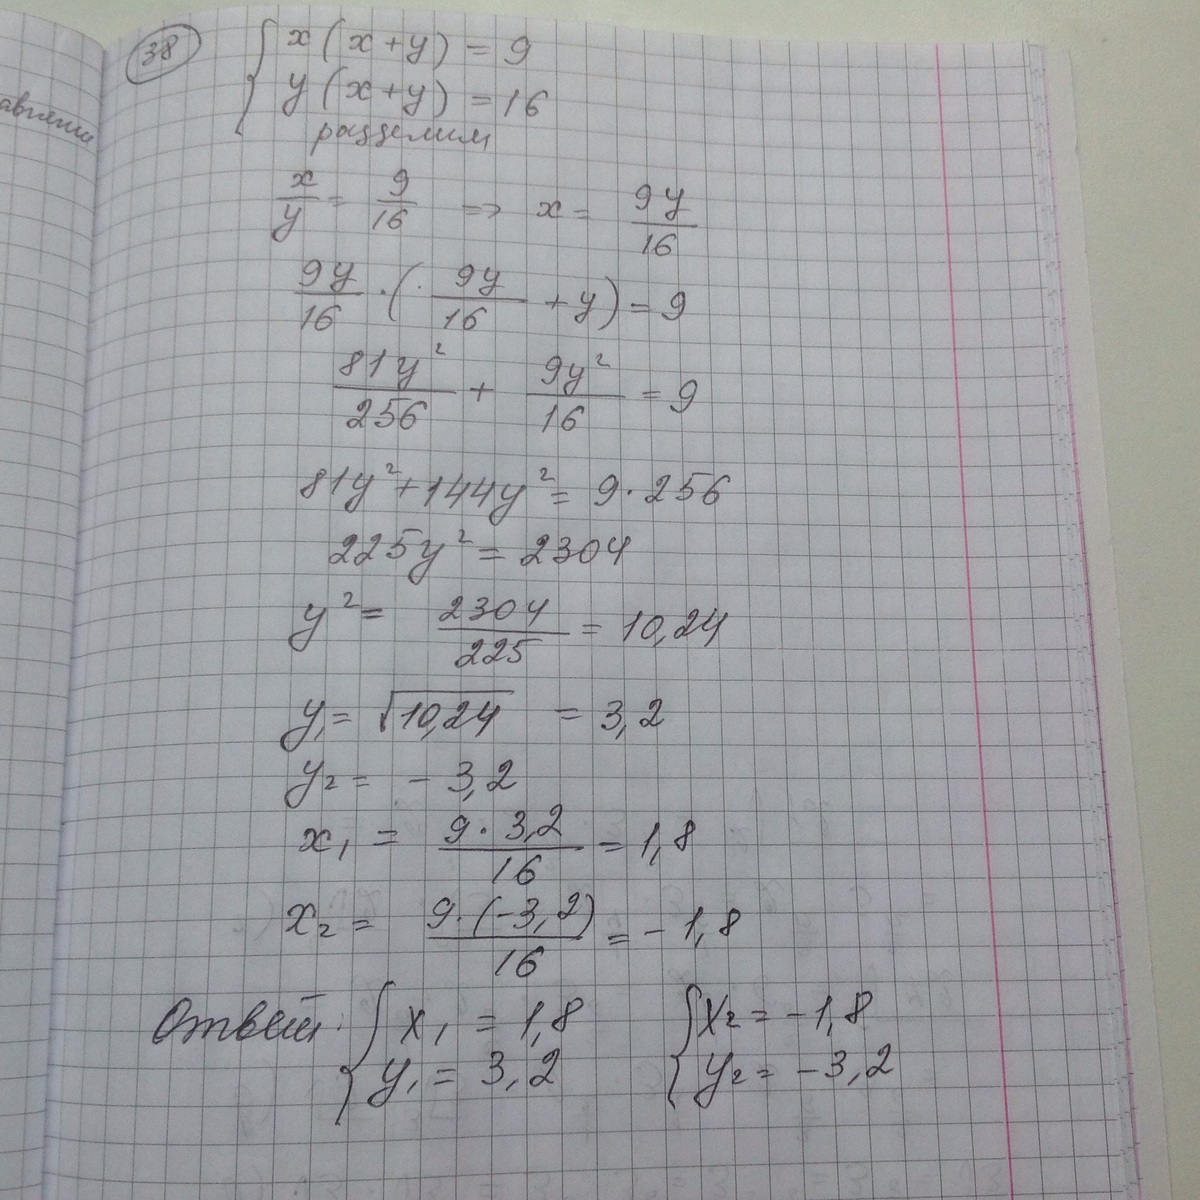 38
x(x+y) = 9
y(x+y) = 16
разделим
x/y = 9/16 => x = 9y/16
9y/16 · (9y/16 + y) = 9
81y²/256 + 9y²/16 = 9
81y² + 144y² = 9·256
225y² = 2304
y² = 2304/225 = 10,24
y₁ = √10,24 = 3,2
y₂ = - 3,2
x₁ = 9·3,2/16 = 1,8
x₂ = 9·(-3,2)/16 = - 1,8
Ответ: { x₁ = 1,8 { x₂ = -1,8
y₁ = 3,2 y₂ = -3,2